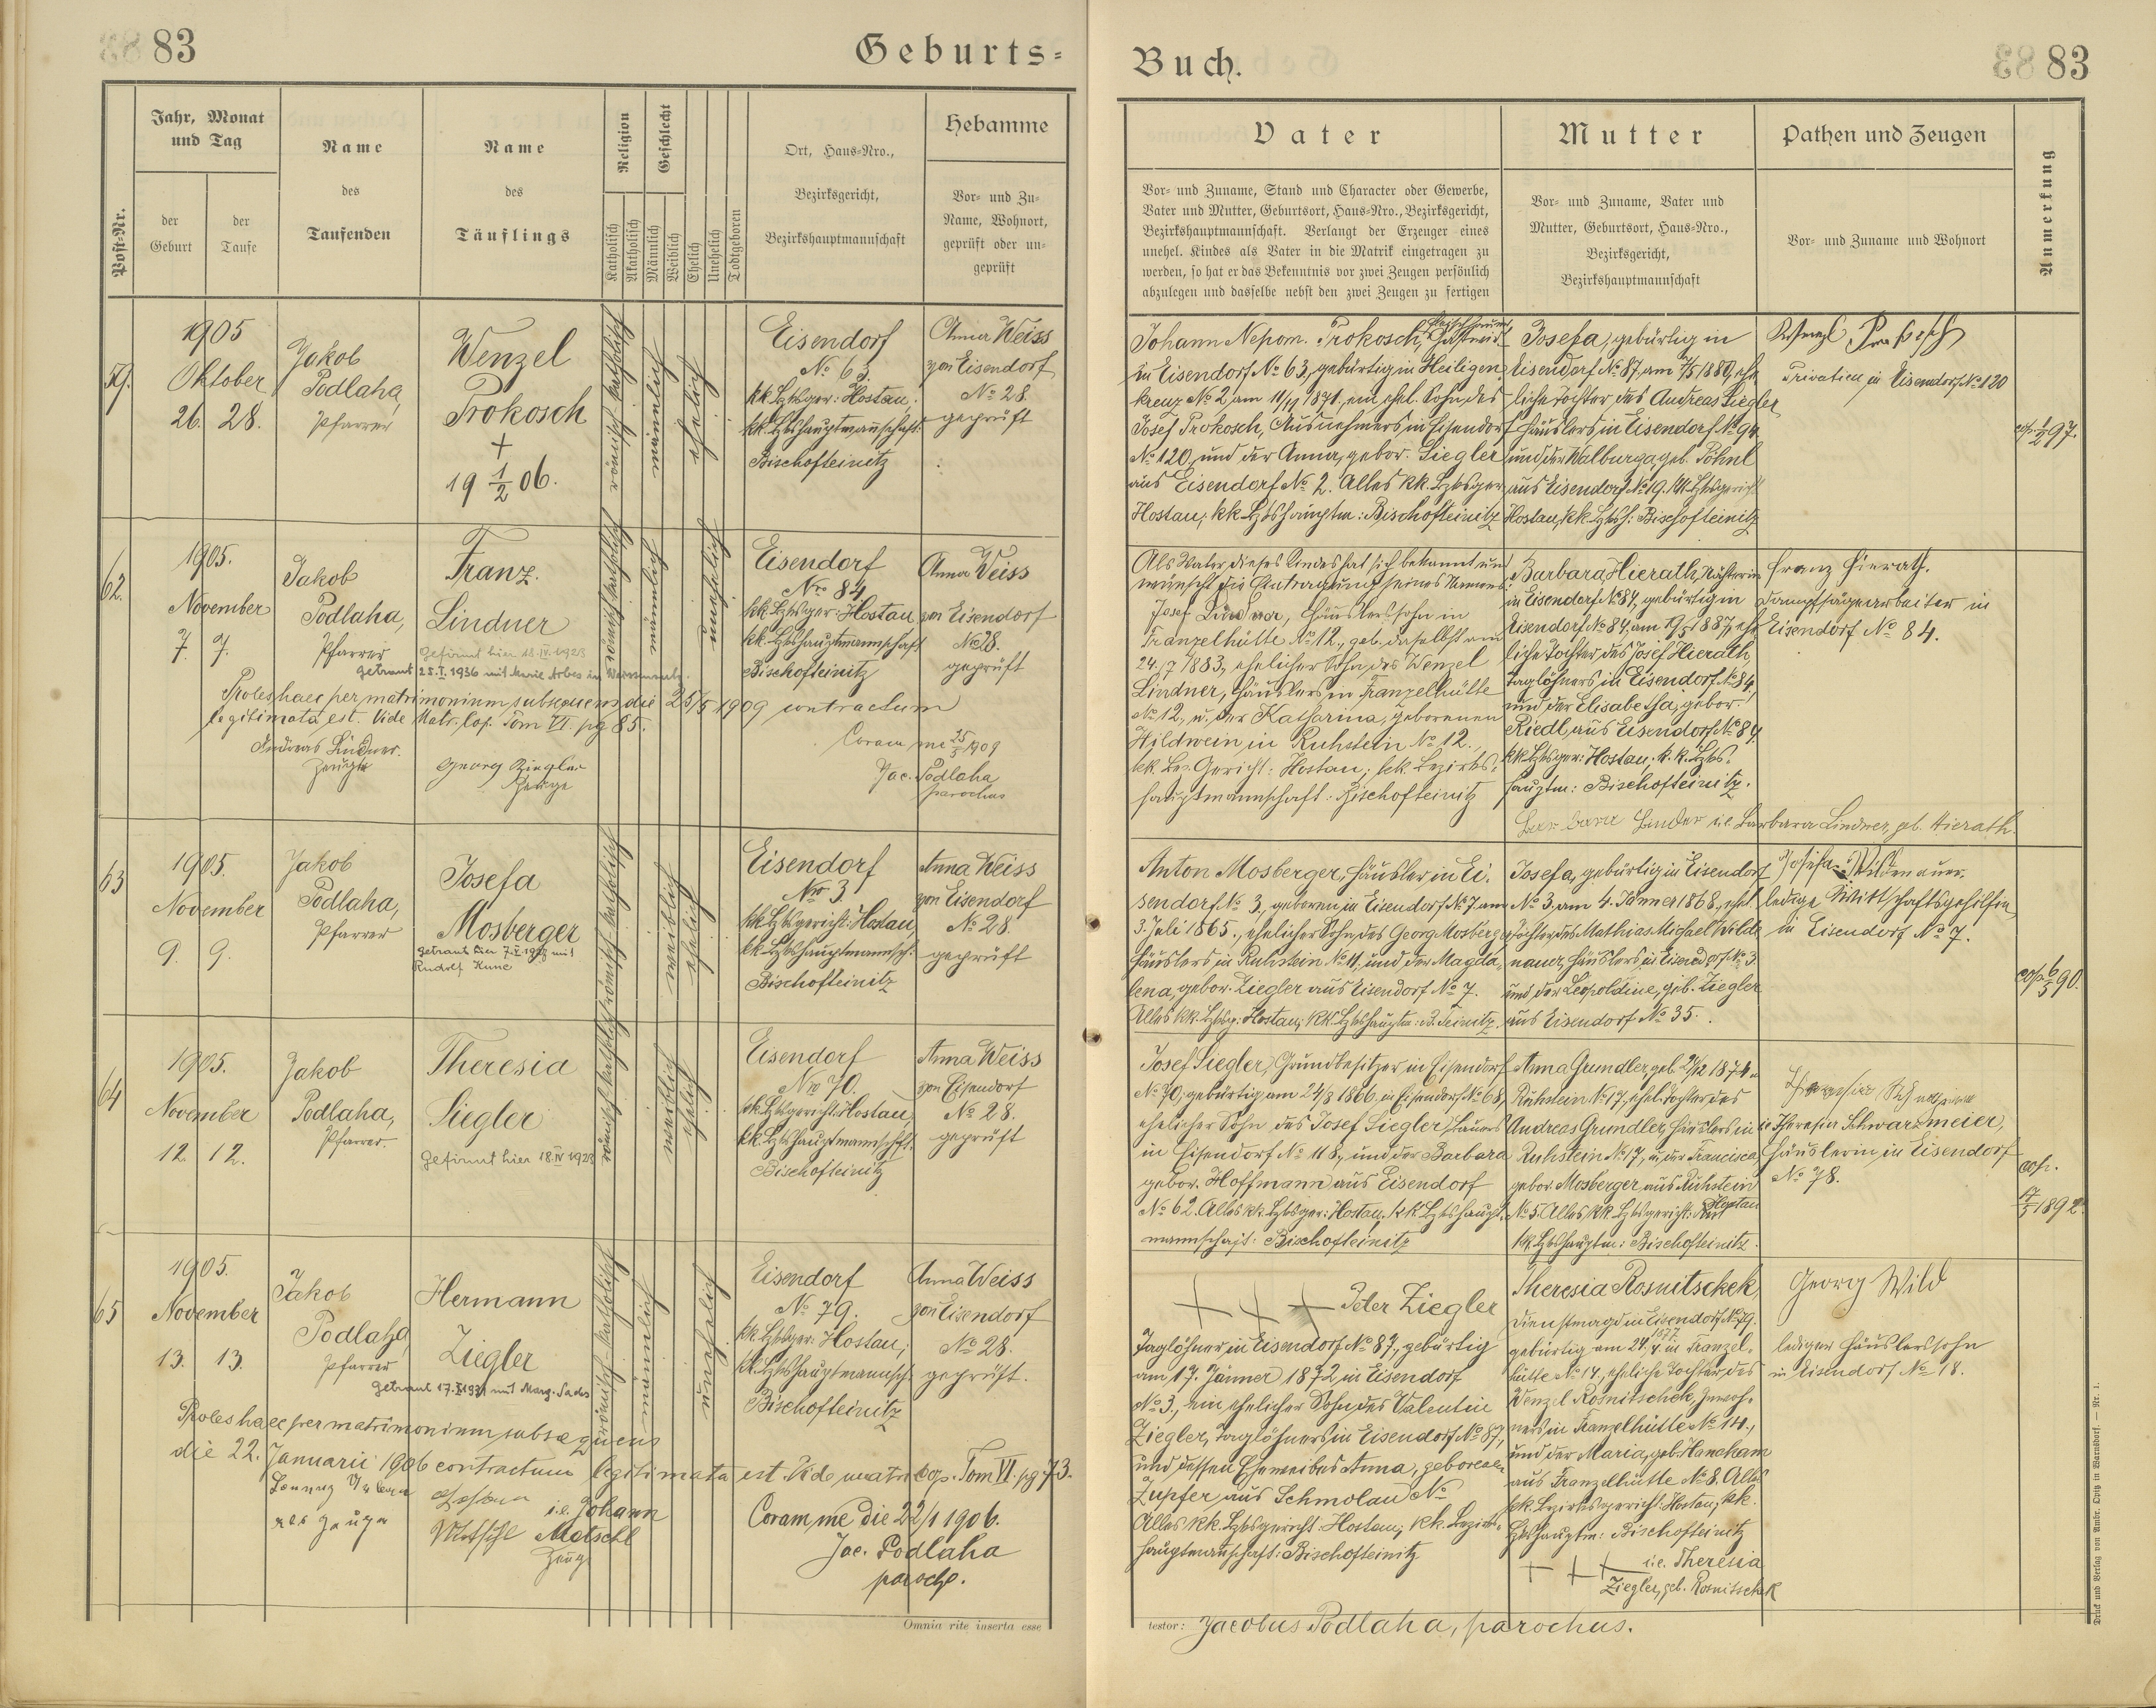 83
Geburts-
Post-Nr.
Jahr, Monat
und Tag
der
Geburt
der
Taufe
Name
des
Taufenden
Name
des
Täuflings
Religion
Katholisch
Akatholisch
Geschlecht
Männlich
Weiblich
Ehelich
Unehelich
Todtgeboren
Ort, Haus-Nro.,
Bezirksgericht,
Bezirkshauptmannschaft
Hebamme
Vor- und Zu-
Name, Wohnort,
geprüft oder un-
geprüft
59.
1905
Oktober
26. 28.
Jakob
Podlaha,
Pfarrer
Wenzel
Prokosch
+
19 1/2 06.
römisch katholisch
männlich
ehelich
Eisendorf
No 63
kk. Bzksger: Hostau.
kk. Bzkshauptmannschaft:
Bischofteinitz
Anna Weiss
von Eisendorf
No 28.
geprüft
62.
1905.
November
7. 7.
Jakob
Podlaha,
Pfarrer
Franz.
Lindner
Gefirmt hier 18.IV.1923
getraut 25.I.1936 mit Marie Arbes in
römisch katholisch
männlich
unehelich
Eisendorf
Nro 84
kk. Bzksger: Hostau
kk. Bzkshauptmannschaft
Bischofteinitz
Anna Weiss
von Eisendorf
No 28.
geprüft
Proles haec per matrimonium subsequens die 25/5 1909 contractum
legitimata est. Vide Matr. cop. Tom VI. pg 85.
Andreas Lindner.
Zeuge
Georg Ziegler
Zeuge
Coram me 25/5 1909
Jac. Podlaha
parochus
63
1905.
November
9. 9.
Jakob
Podlaha,
Pfarrer
Josefa
Mosberger
getraut hier
mit
Rudolf
römisch katholisch
weiblich
ehelich
Eisendorf
Nro 3
kk. Bzksgericht: Hostau,
kk. Bzkshauptmannsch:
Bischofteinitz
Anna Weiss
von Eisendorf
No 28.
geprüft
64
1905.
November
12. 12.
Jakob
Podlaha,
Pfarrer.
Theresia
Siegler
Gefirmt hier 18.IV.1923
römisch katholisch
weiblich
ehelich
Eisendorf
Nro 70.
kk. Bzksgericht: Hostau,
kk. Bzkshauptmannschft.
Bischofteinitz
Anna Weiss
von Eisendorf
No 28.
geprüft
65
1905.
November
13. 13.
Jakob
Podlaha,
Pfarrer
Hermann
Ziegler
getraut 17.
mit Marg.
römisch-katholisch
männlich
unehelich
Eisendorf
No 79.
kk. Bzksger: Hostau,
kk. Bzkshauptmannsch
Bischofteinitz
Anna Weiss
von Eisendorf
No 28.
geprüft.
Proles haec per matrimonium subsequens
die 22. Januarii 1906 contractum legitimata est. Vide matr. cop. Tom VI. pg 73.
als Zeuge
i.e. Johann
Motschl
Zeuge
Coram me die 22/1 1906.
Jac. Podlaha
paroch.
Omnia rite inserta esse
Buch.
83
Vater
Vor- und Zuname, Stand und Character oder Gewerbe,
Vater und Mutter, Geburtsort, Haus-Nro., Bezirksgericht,
Bezirkshauptmannschaft. Verlangt der Erzeuger eines
unehel. Kindes als Vater in die Matrik eingetragen zu
werden, so hat er das Bekenntnis vor zwei Zeugen persönlich
abzulegen und dasselbe nebst den zwei Zeugen zu fertigen
Mutter
Vor- und Zuname, Vater und
Mutter, Geburtsort, Haus-Nro.,
Bezirksgericht,
Bezirkshauptmannschaft
Pathen und Zeugen
Vor- und Zuname und Wohnort
Anmerkung
Johann Nepom. Prokosch,
in Eisendorf No 63, gebürtig in Heiligen
kreuz No 2, am 11/11 1871, ein ehel. Sohn des
Josef Prokosch, Ausnehmers in Eisendorf
No 120, und der Anna, gebor. Siegler
aus Eisendorf No 2. Alles kk. Bzksger
Hostau; kk Bzkshauptm: Bischofteinitz
Josefa, gebürtig in
Eisendorf No 87, am 7/5 1880, ehe
liche Tochter des Andreas Siegler
Häuslers in Eisendorf No 94,
und der Walburga, geb. Pöhnl
aus Eisendorf No 19. kk. Bzksgericht
Hostau, kk. Bzksh: Bischofteinitz
Wenzl Prokosch
Privatier in Eisendorf No 120
cop. 1/2 97.
Als Vater dieses Kindes hat sich bekannt und
wünscht die Eintragung seines Namens
Josef Lindner, Häuslerssohn in
Franzelhütte No 12, geb. daselbst am
24./7 1883, ehelicher Sohn des Wenzel
Lindner, Häuslers in Franzelhütte
No 12, u. der Katharina, geborenen
Hildwein in Ruhstein No 12.
kk. Bez. Gericht: Hostau; kk. Bezirks-
hauptmannschaft: Bischofteinitz
Barbara Hierath, Nähterin
in Eisendorf No 84, gebürtig in
Eisendorf No 84, am 19/5 1887, ehe
liche Tochter des Josef Hierath,
Taglöhners in Eisendorf No 84,
und der Elisabetha, gebor.
Riedl, aus Eisendorf No 84.
kk. Bzksger: Hostau, k. k. Bzks-
hauptm: Bischofteinitz.
i.e. Barbara Lindner, geb. Hierath.
Franz Hierath.
Dampfsägearbeiter in
Eisendorf No 84.
Anton Mosberger, Häusler in Ei-
sendorf No 3, geboren in Eisendorf No 7 am
3. Juli 1865., ehelicher Sohn des Georg Mosberger
Häuslers in Ruhstein No 11, und der Magda-
lena, gebor. Ziegler aus Eisendorf No 7.
Alles kk. Bzksg: Hostau; kk. Bzkshauptm: B. Teinitz.
Josefa, gebürtig in Eisendorf
No 3, am 4. Jänner 1868, ehel.
Tochter des Mathias Michael Wilde
nauer, Häuslers in Eisendorf No 3
und der Leopoldine, geb. Ziegler
aus Eisendorf No 35.
Josefa Wildenauer.
ledige Wirtschaftsgehilfin
in Eisendorf No 7.
cop. 6/5 90.
Josef Siegler, Grundbesitzer in Eisendorf
No 70, gebürtig am 24/8 1866 in Eisendorf No 68,
ehelicher Sohn des Josef Siegler, Bauers
in Eisendorf No 118, und der Barbara
gebor. Hoffmann aus Eisendorf
No 62. Alles kk. Bzksger: Hostau, kk Bzkshaupt-
mannschaft: Bischofteinitz
Anna Grundler, geb. 20/12 1874 in
Ruhstein No 17, ehel. Tochter des
Andreas Grundler, Häuslers in
Ruhstein No 17, u. der Francisca
gebor. Mosberger aus Ruhstein
No 5. Alles kk. Bzksgericht: Hostau
kk. Bzkshauptm: Bischofteinitz.
i.e. Theresia Schwarzmeier,
Häuslerin in Eisendorf
No 78.
cop.
17/5 1892
+ + + Peter Ziegler
Taglöhner in Eisendorf No 87, gebürtig
am 17. Jänner 1872, in Eisendorf
No 3., ein ehelicher Sohn des Valentin
Ziegler, Taglöhners in Eisendorf No 87,
und dessen Eheweibes Anna, geborenen
Zupfer, aus Schmolau No
Alles kk. Bzksgericht: Hostau; kk. Bezirks-
hauptmannschaft: Bischofteinitz
Theresia Rosnitschek,
Dienstmagd in Eisendorf No 79.
gebürtig am 24. 4. 1877 in Franzel-
hütte No 14., eheliche Tochter des
Wenzel Rosnitschek, Inwoh-
ners in Franzelhütte No 14.,
und der Maria, geb. Hanakam
aus Franzelhütte No 8. Alles
kk. Bezirksgericht: Hostau, kk.
Bzkshauptm: Bischofteinitz
+ + + i.e. Theresia
Ziegler, geb. Rosnitschek
Georg Wild
lediger Häuslerssohn
in Eisendorf No 18.
testor: Jacobus Podlaha, parochus.
Druck und Verlag von Ambr. Opitz in Warnsdorf. — Nr. 1.